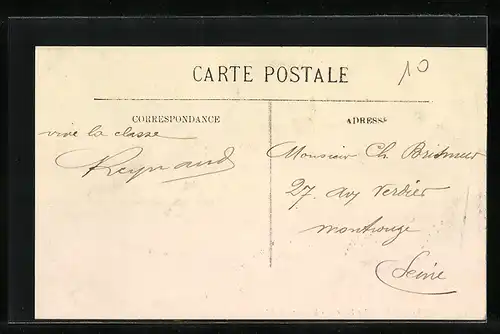 CARTE POSTALE
10
CORRESPONDANCE
ADRESSE
vive la classe
Reynaud
Monsieur Ch
27. av Verdier
montrouge
Seine